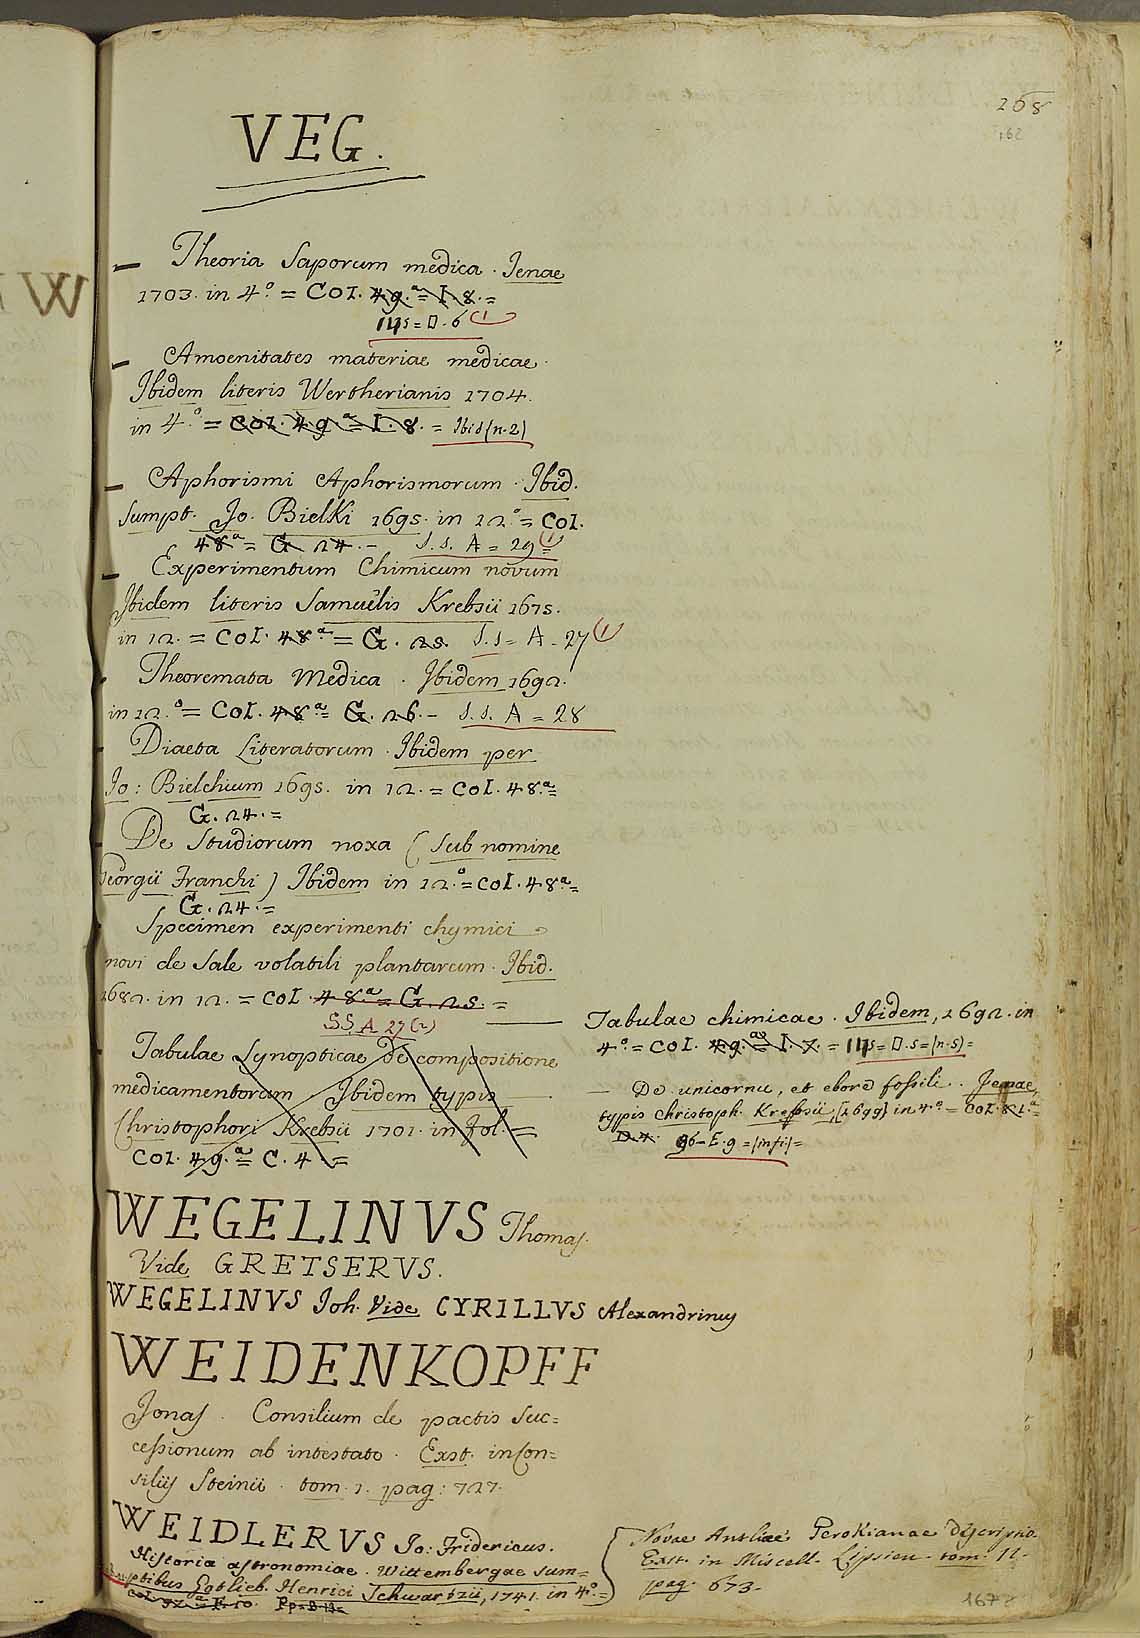 268
162
VEG.
Theoria Saporum medica. Jenae
1703. in 4.° = Col. 49.ª = I. 8. =
115 = D. 6 (1
Amoenitates materiae medicae.
Ibidem literis Wertherianis 1704.
in 4.° = Col. 49.ª = I. 8. = Ibid (n. 2)
Aphorismi Aphorismorum. Ibid.
sumpt. Jo. Bielki 1695. in 12.° = Col.
48ª = G. 24. - S. S. A = 29 (1)
Experimentum Chimicum novum
Ibidem literis Samuëlis Krebsii 1675.
in 12. = Col. 48ª = G. 25. S. S = A - 27 (1)
Theoremata Medica. Ibidem 1692.
in 12.° = Col. 48.ª = G. 26. - S. S. A = 28
Diaeta Literatorum. Ibidem per
Jo: Bielchium 1695. in 12. = Col. 48.ª =
G. 24. =
De Studiorum noxa (sub nomine
Georgii Franchi) Ibidem in 12.° = Col. 48ª =
G. 24. =
Specimen experimenti chymici
novi de Sale volatili plantarum. Ibid.
1682. in 12. = Col. 48.ª = G. 25. =
SS A 27 (2)
Tabulae Synopticae de compositione
medicamentorum Ibidem typis
Christophori Krebsii 1701. in fol. =
Col. 49.ª = C. 4. =
Tabulae chimicae. Ibidem, 1692. in
4.° = Col. 49.ª = I. 7. = 115 = D. 5 = (n. 5) =
De unicornu, et ebore fossili. Jenae
typis Christoph. Krebsii, [1699] in 4.° = Col. 81.ª =
D. 4. 96 - E. 9 = (in fi) =
WEGELINVS Thomas.
Vide GRETSERVS.
WEGELINVS Joh. Vide CYRILLVS Alexandrinus
WEIDENKOPFF
Jonas. Consilium de pactis suc=
cessionum ab intestato. Exst. in Con=
siliis Steinii. tom. 1. pag: 727.
WEIDLERVS Jo: Fridericus.
Historia astronomiae. Wittembergae sum=
ptibus Gotlieb. Henrici Schwartzii, 1741. in 4.° =
Col. 92.ª = F. 10. Pp = B. 13 =
Novae Antliae Perokianae descriptio.
Exst. in Miscell. Lipsien. tom. 11.
pag. 673.